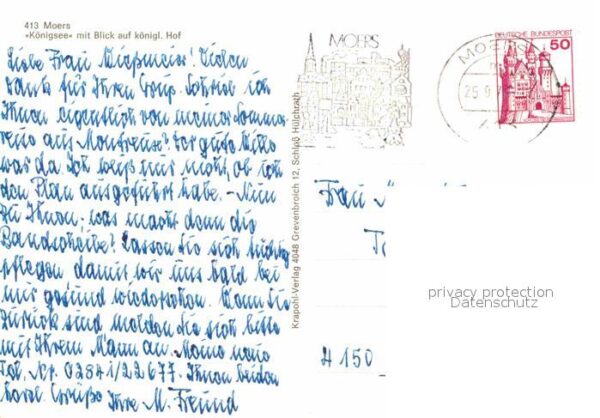 413 Moers
»Königsee« mit Blick auf königl. Hof
Liebe Frau Vielen
Dank für Ihren Gruß. Schrieb ich
Ihnen eigentlich von meiner Sommer-
reise aus Montreux? Der gute Wille
war da. Ich weiß nur nicht, ob ich
den Plan ausgeführt habe. – Nun
zu Ihnen: was macht denn die
Bandscheibe? Lassen Sie sich tüchtig
pflegen damit wir uns bald bei
mir gesund wiedersehen. Wenn Sie
zurück sind melden Sie sich bitte
mit Ihrem Mann an. Meine neue
Tel. Nr. 02841/22677. Ihnen beiden
herzl. Grüße Ihre M. Freund
Krapohl-Verlag 4048 Grevenbroich 12, Schloß Hülchrath
MOERS
MOERS
25.9.
DEUTSCHE BUNDESPOST
50
Frau
H 150
privacy protection
Datenschutz